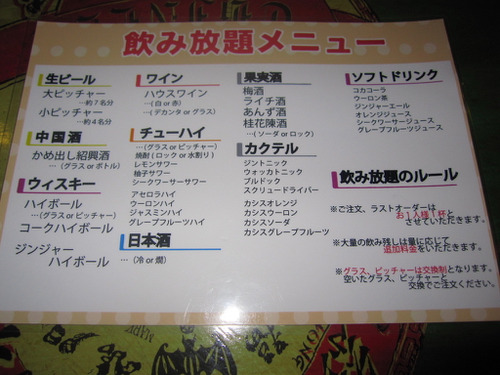 飲み放題メニュー
生ビール
大ピッチャー
…約7名分
小ピッチャー
…約4名分
中国酒
かめ出し紹興酒
…(グラス or ボトル)
ウィスキー
ハイボール
…(グラス or ピッチャー)
コークハイボール
ジンジャー
ハイボール
ワイン
ハウスワイン
…(白 or 赤)
…(デカンタ or グラス)
チューハイ
…(グラス or ピッチャー)
焼酎(ロック or 水割り)
レモンサワー
柚子サワー
シークワーサーサワー
アセロラハイ
ウーロンハイ
ジャスミンハイ
グレープフルーツハイ
日本酒
…(冷 or 燗)
果実酒
梅酒
ライチ酒
あんず酒
桂花陳酒
…(ソーダ or ロック)
カクテル
ジントニック
ウォッカトニック
ブルドック
スクリュードライバー
カシスオレンジ
カシスウーロン
カシスソーダ
カシスグレープフルーツ
ソフトドリンク
コカコーラ
ウーロン茶
ジンジャーエール
オレンジジュース
シークワーサージュース
グレープフルーツジュース
飲み放題のルール
※ご注文、ラストオーダーは
お1人様1杯と
させていただきます。
※大量の飲み残しは量に応じて
追加料金をいただきます。
※グラス、ピッチャーは交換制となります。
空いたグラス、ピッチャーと
交換でご注文ください。